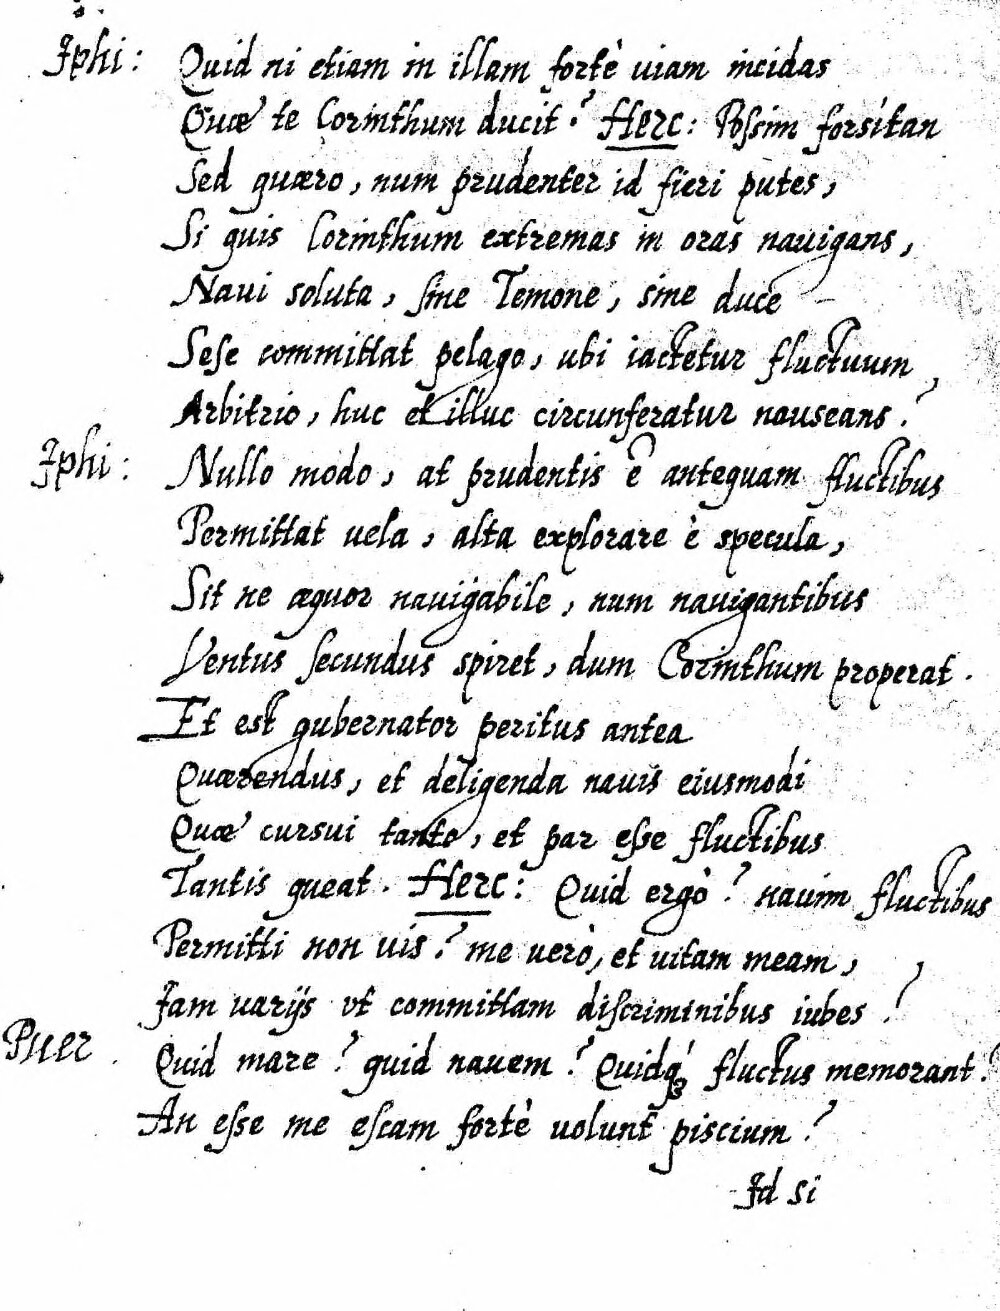 Iphi: Quid ni etiam in illam fortè uiam incidas
Quæ te Corinthum ducit? Herc: Possim forsitan
Sed quæro, num prudenter id fieri putes,
Si quis Corinthum extremas in oras nauigans,
Naui soluta, sine Temone, sine duce
Sese committat pelago, ubi iactetur fluctuum
Arbitrio, huc et illuc circunferatur nauseans?
Iphi: Nullo modo, at prudentis ẽ antequam fluctibus
Permittat uela, alta explorare è specula,
Sit ne æquor nauigabile, num nauigantibus
Ventus secundus spiret, dum Corinthum properat.
Et est gubernator peritus antea
Quærendus, et deligenda nauis eiusmodi
Quæ cursui tanto, et par esse fluctibus
Tantis queat. Herc: Quid ergò? nauim fluctibus
Permitti non uis? me uerò, et uitam meam,
Iam uarijs vt committam discriminibus iubes?
Puer Quid mare? quid nauem? Quidq́ꝫ fluctus memorant?
An esse me escam fortè uolunt piscium?
Id si